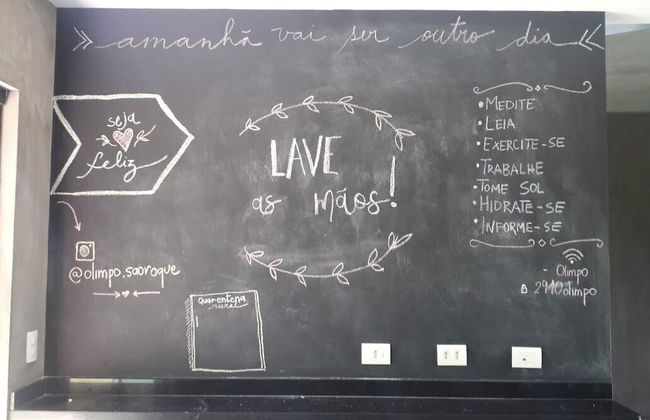 amanhã vai ser outro dia
seja
feliz
@olimpo.saoroque
LAVE
as mãos!
• MEDITE
• LEIA
• EXERCITE-SE
• TRABALHE
• TOME SOL
• HIDRATE-SE
• INFORME-SE
- Olimpo
quarentena
rural